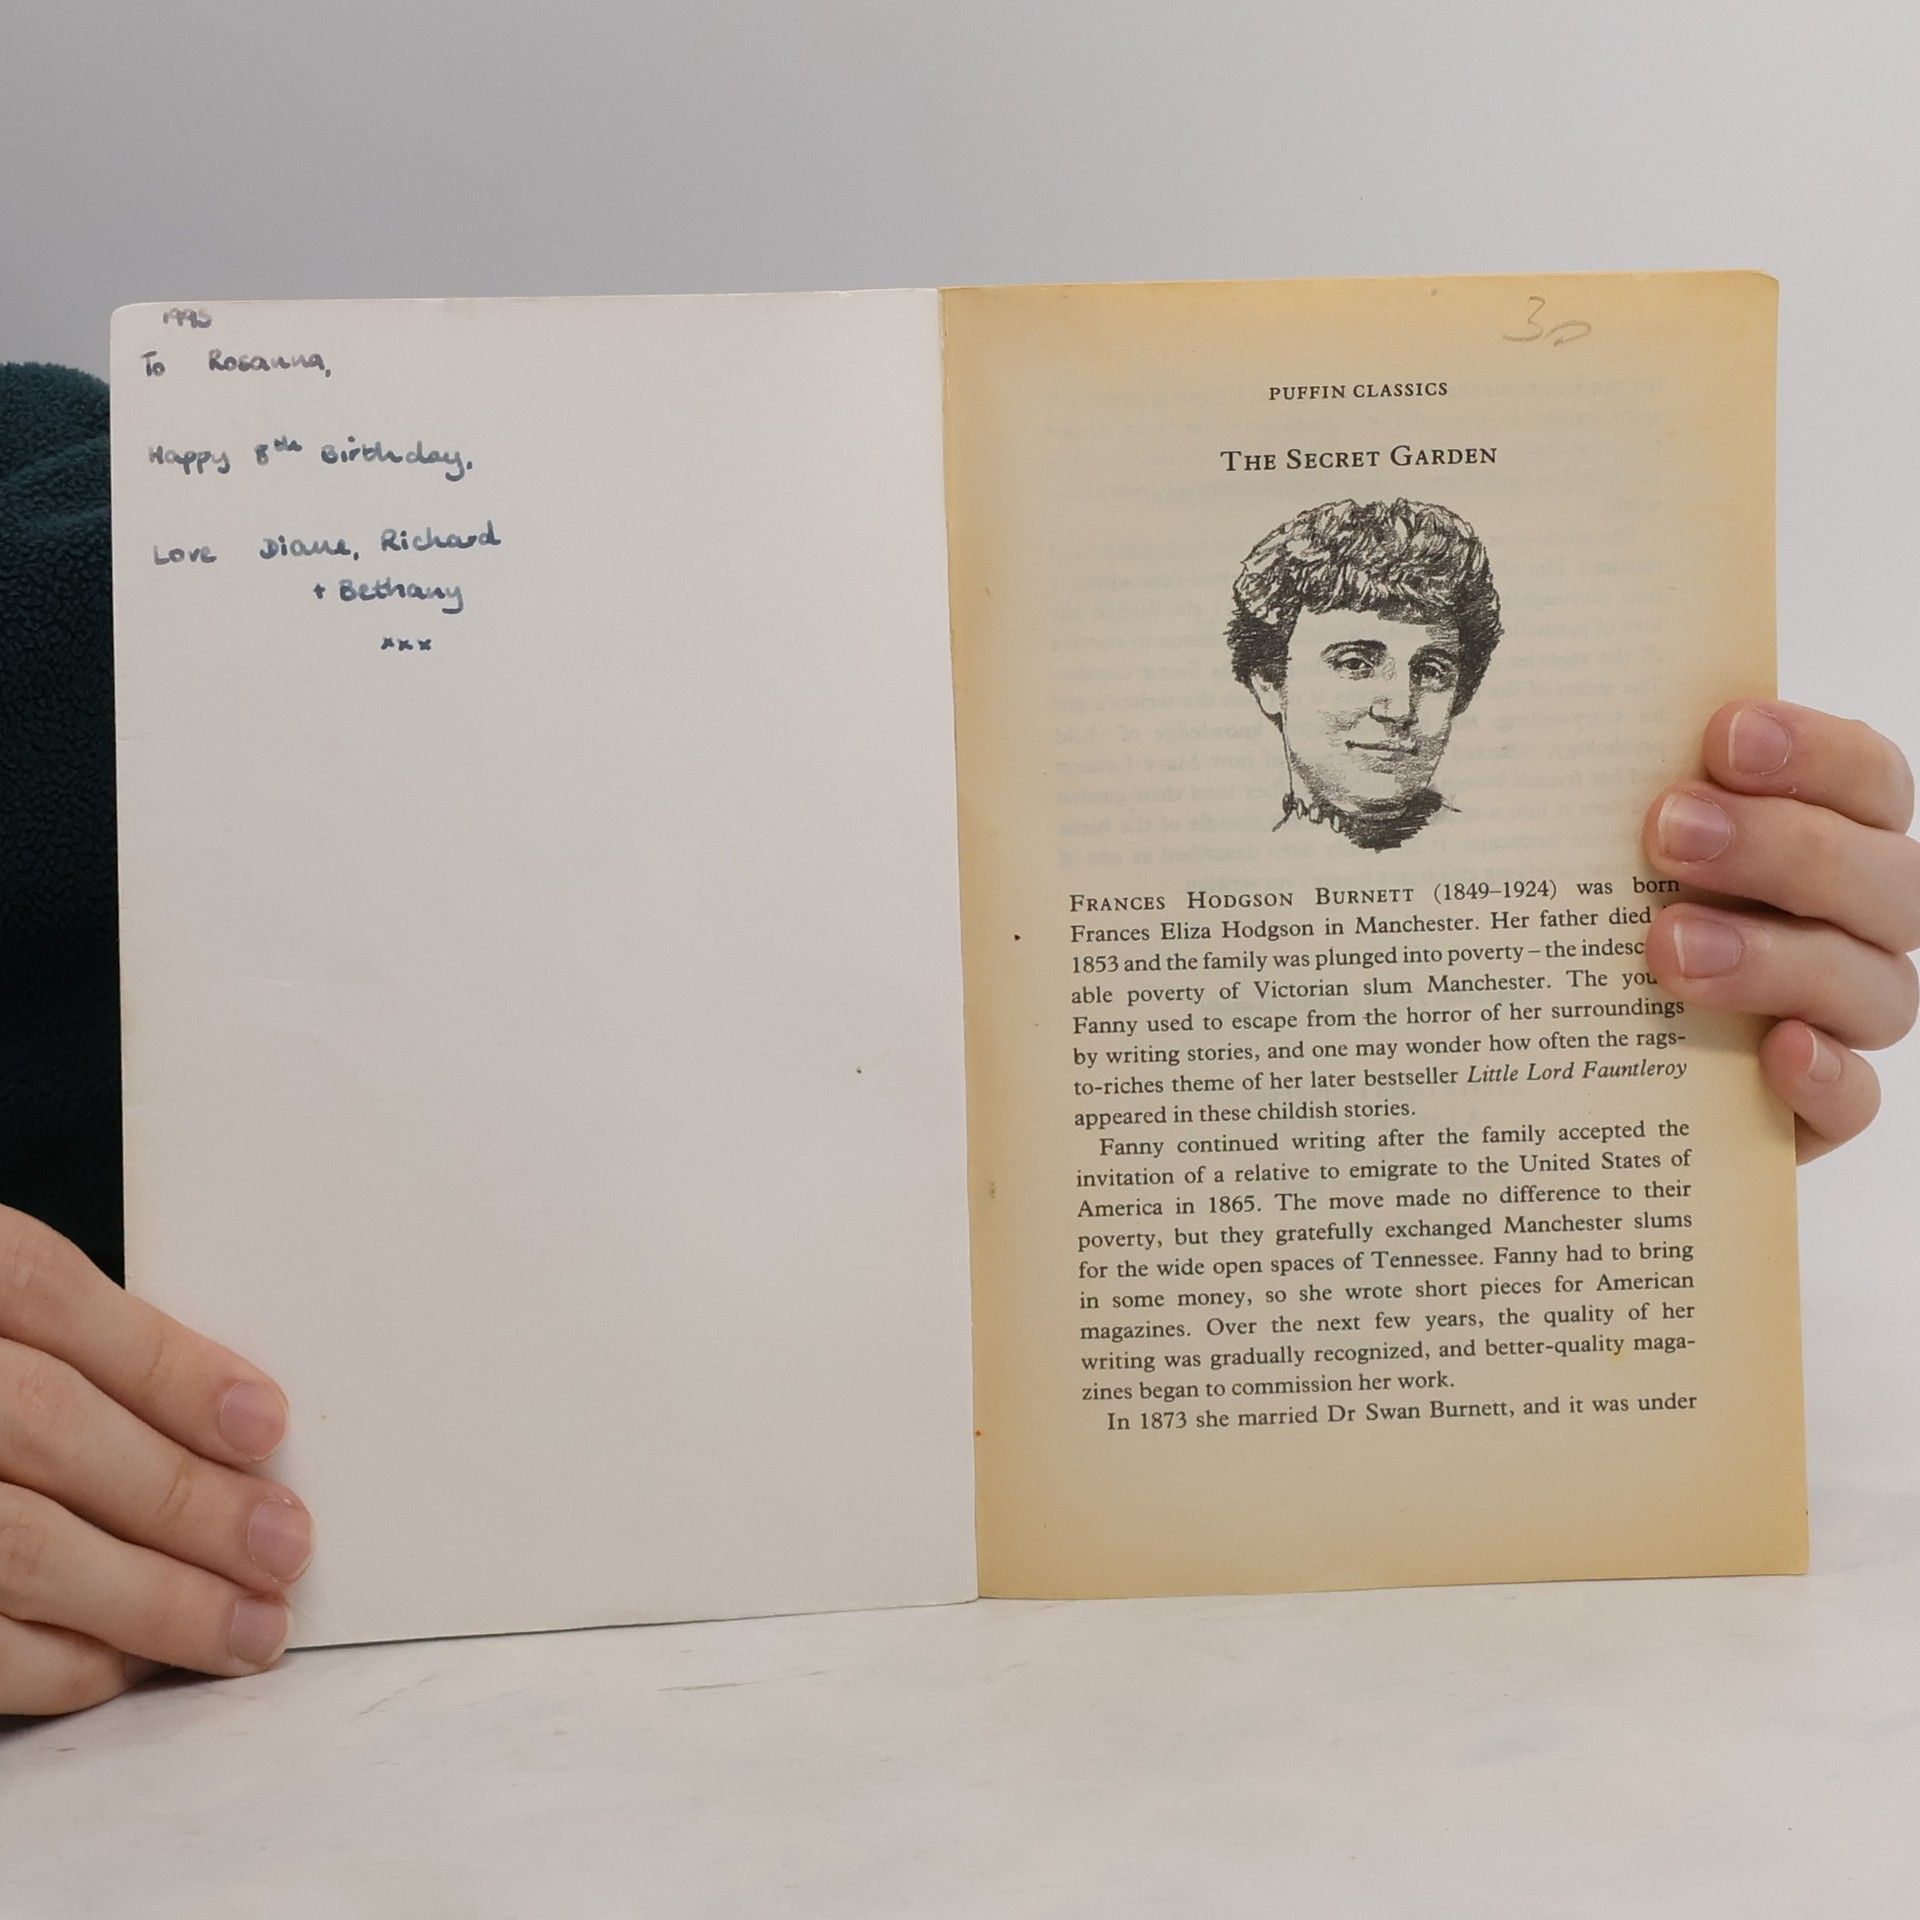 1995
To Rosanna,
Happy 8th Birthday,
Love Diane, Richard
+ Bethany
xxx
30
PUFFIN CLASSICS
THE SECRET GARDEN
FRANCES HODGSON BURNETT (1849–1924) was born
Frances Eliza Hodgson in Manchester. Her father died
1853 and the family was plunged into poverty – the indesc
able poverty of Victorian slum Manchester. The you
Fanny used to escape from the horror of her surroundings
by writing stories, and one may wonder how often the rags-
to-riches theme of her later bestseller Little Lord Fauntleroy
appeared in these childish stories.
Fanny continued writing after the family accepted the
invitation of a relative to emigrate to the United States of
America in 1865. The move made no difference to their
poverty, but they gratefully exchanged Manchester slums
for the wide open spaces of Tennessee. Fanny had to bring
in some money, so she wrote short pieces for American
magazines. Over the next few years, the quality of her
writing was gradually recognized, and better-quality maga-
zines began to commission her work.
In 1873 she married Dr Swan Burnett, and it was under